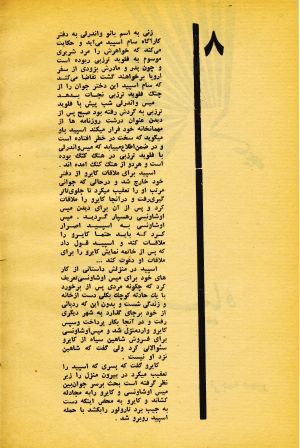 ۸
زنی به اسم بانو واندرلی به دفتر
کارآگاه سام اسپید می‌آید و حکایت
می‌کند که خواهرش را مرد شریری
موسوم به فلوید ترزبی ربوده است
و چون پدر و مادرش بزودی از سفر
اروپا برخواهند گشت تقاضا می‌کند
که سام اسپید این دختر جوان را از
چنگ فلوید ترزبی نجات بدهد
میس واندرلی شب پیش با فلوید
ترزبی به گردش رفته بود صبح پس از
دیدن عنوان درشت روزنامه ها از
مهمانخانه خود فرار میکند اسپید باو
میگوید که سخت در خطر افتاده است
و در ضمن اطلاع میابد که میس‌واندرلی
با فلوید ترزبی در هنگ کنگ بوده
است و هردو از هنگ کنگ آمده اند .
اسپید برای ملاقات کایرو از دفتر
خود خارج شد و درحالی که جوانی
مرتب او را تعقیب میکرد تا جلوی‌تاتر
گیری‌رفت و درآنجا کایرو را ملاقات
کرد و پس از آن برای دیدن میس
اوشاونسی رهسپار گردید . میس
اوشاونسی به اسپید اصرار
کرد که باید حتما کایرو را
ملاقات کند و اسپید قول داد
که پس از خاتمه نمایش کایرو را برای
ملاقات او دعوت کند ...
اسپید در منزلش داستانی از کار
های خود برای میس اوشاونسی‌تعریف
کرد که چگونه مردی پس از برخورد
با یك حادثه کوچك یکلی دست ازخانه
و زندگی شست و بدون این که ردپائی
از خود برجای گذارد به شهر دیگری
رفت و در آنجا بکار پرداخت وسپس
کایرو واردمنزل شد و میس‌اوشاونسی
برای فروش شاهین سیاه از کایرو
سئوالاتی کرد ولی گفت که شاهین
نزد او نیست .
کایرو گفت که پسری که اسپید را
تعقیب میکرد در بیرون منزل را زیر
نظر گرفته است بحث برسر جوان‌بین
میس اوشاونسی و کایرو رابه مجادله
کشاند و کایرو به محض اینکه دست
به جیب برد تارولور رابکشد با حمله
اسپید روبرو شد .